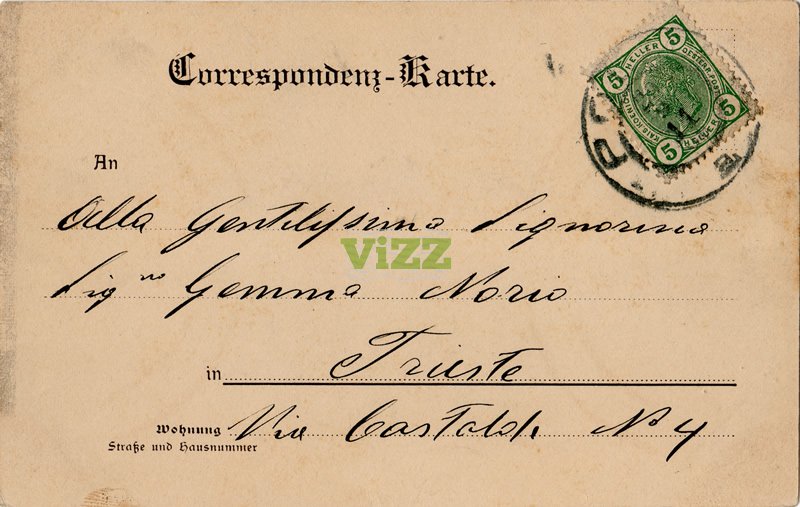 Correspondenz-Karte.
5 HELLER 5
5 HELLER 5
An
Alla Gentilissima Signorina
ViZZ
Sig.na Gemma Norio
in Trieste
Wohnung Via Castaldi N° 4
Straße und Hausnummer